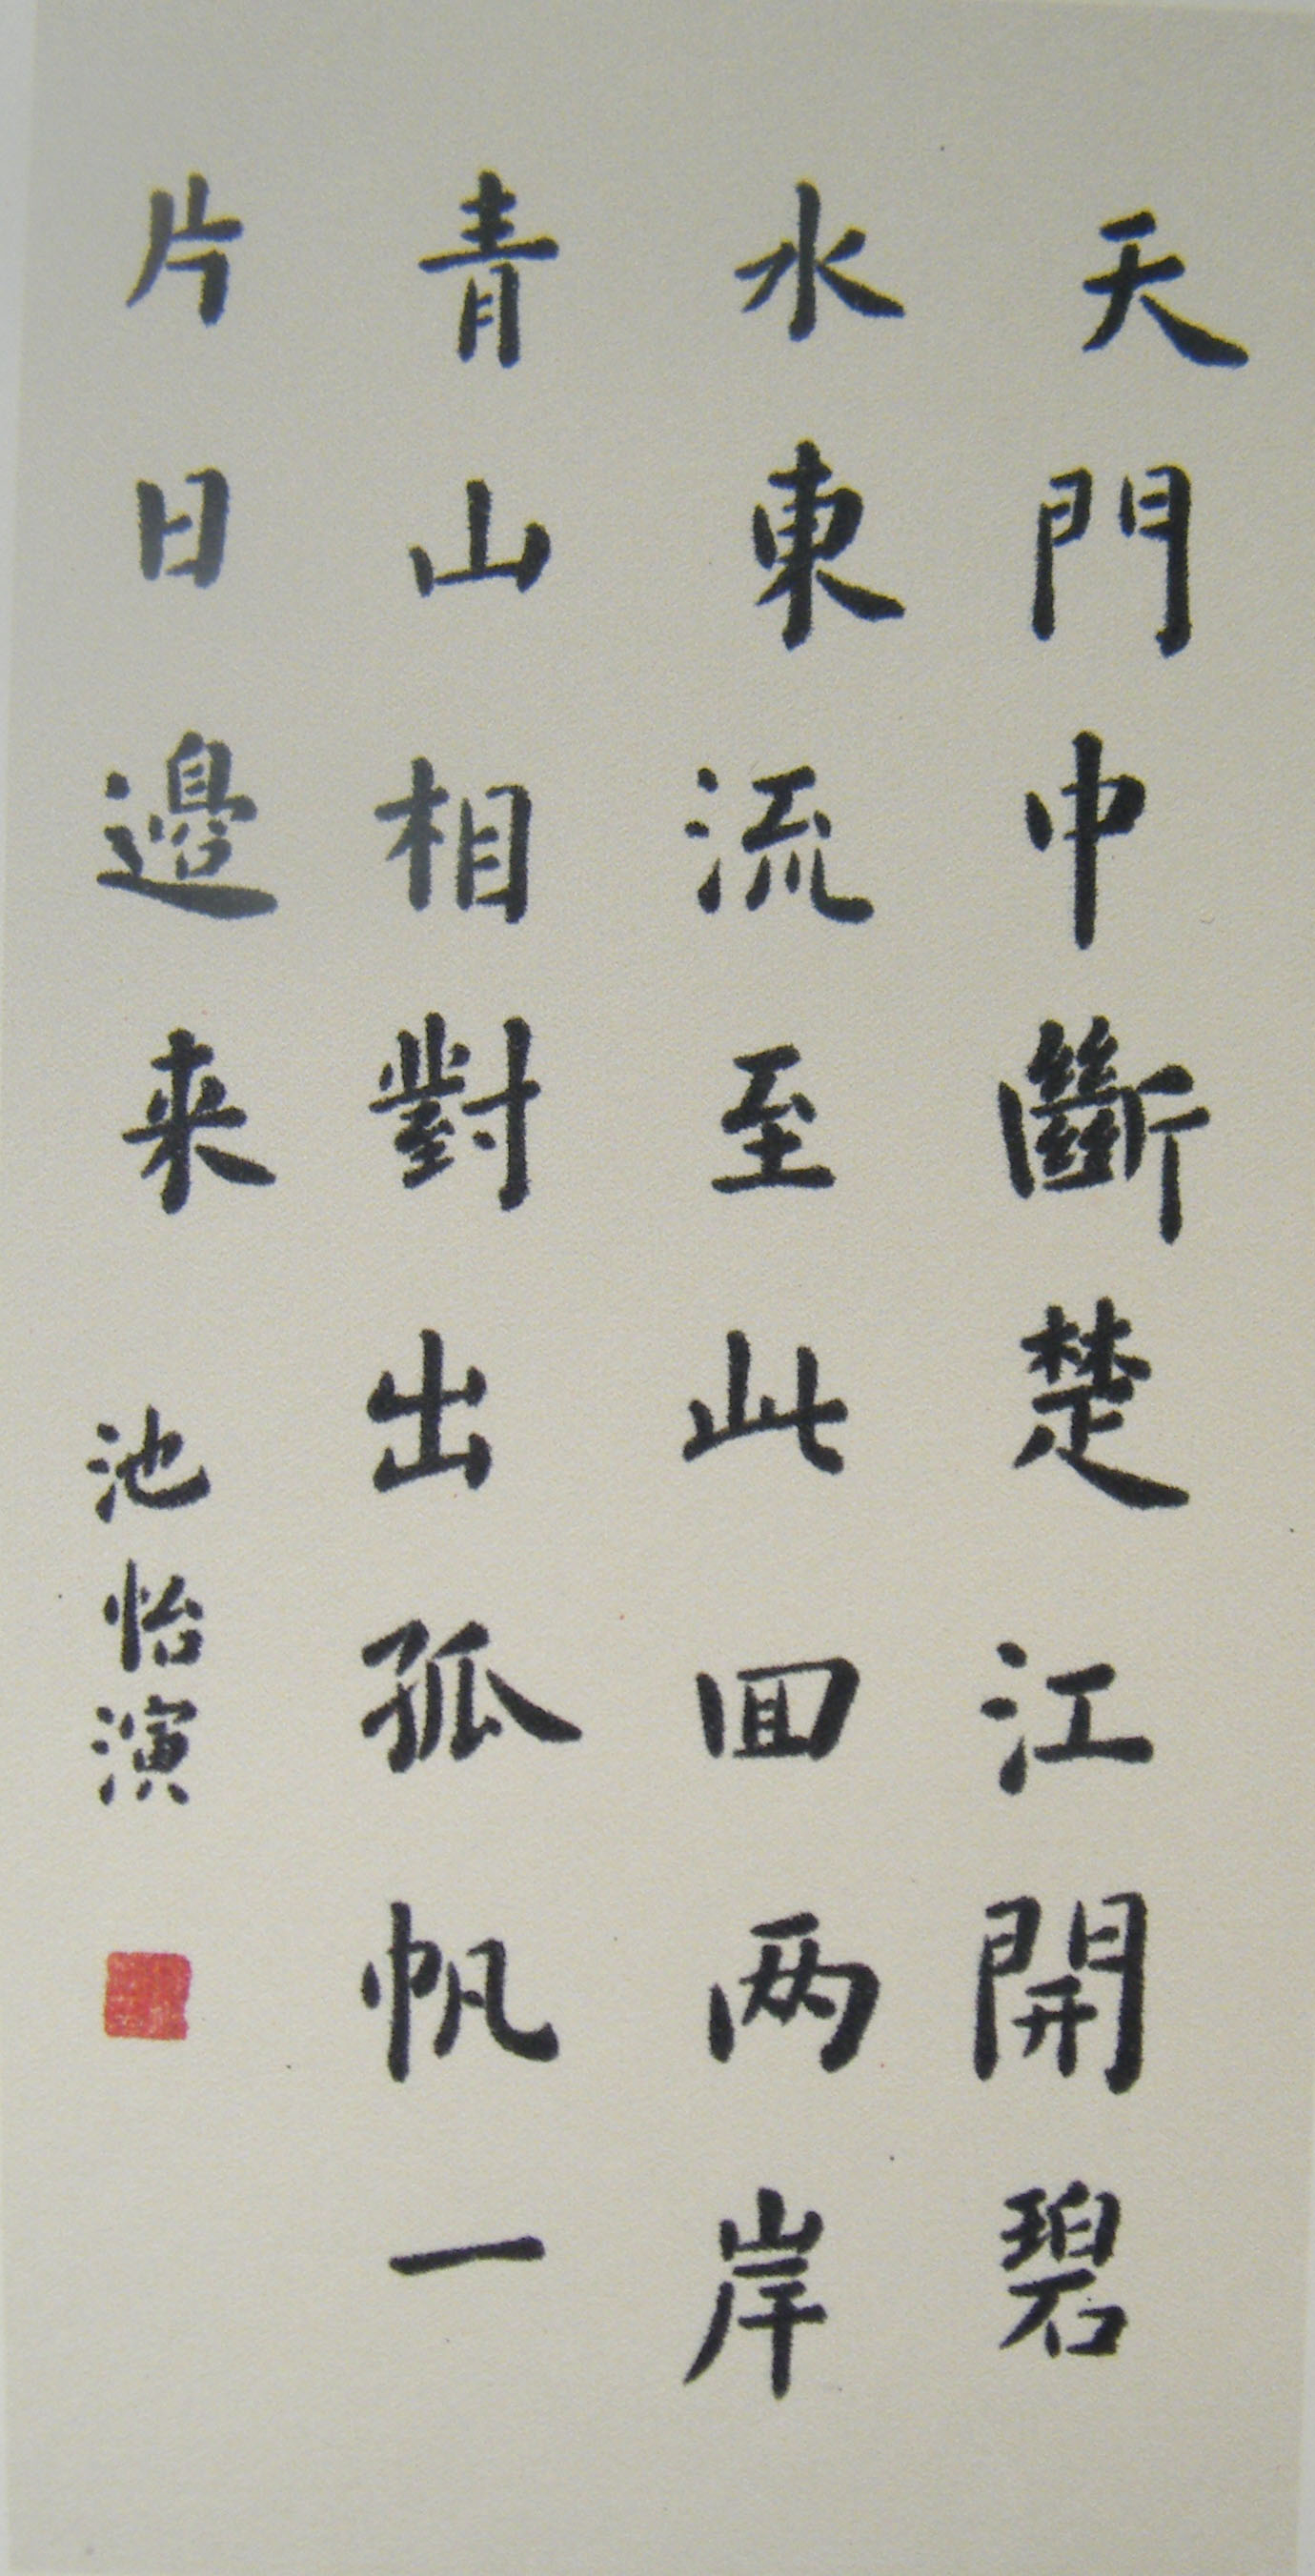 天門中斷楚江開碧
水東流至此回两岸
青山相對出孤帆一
片日邊来
池怡演